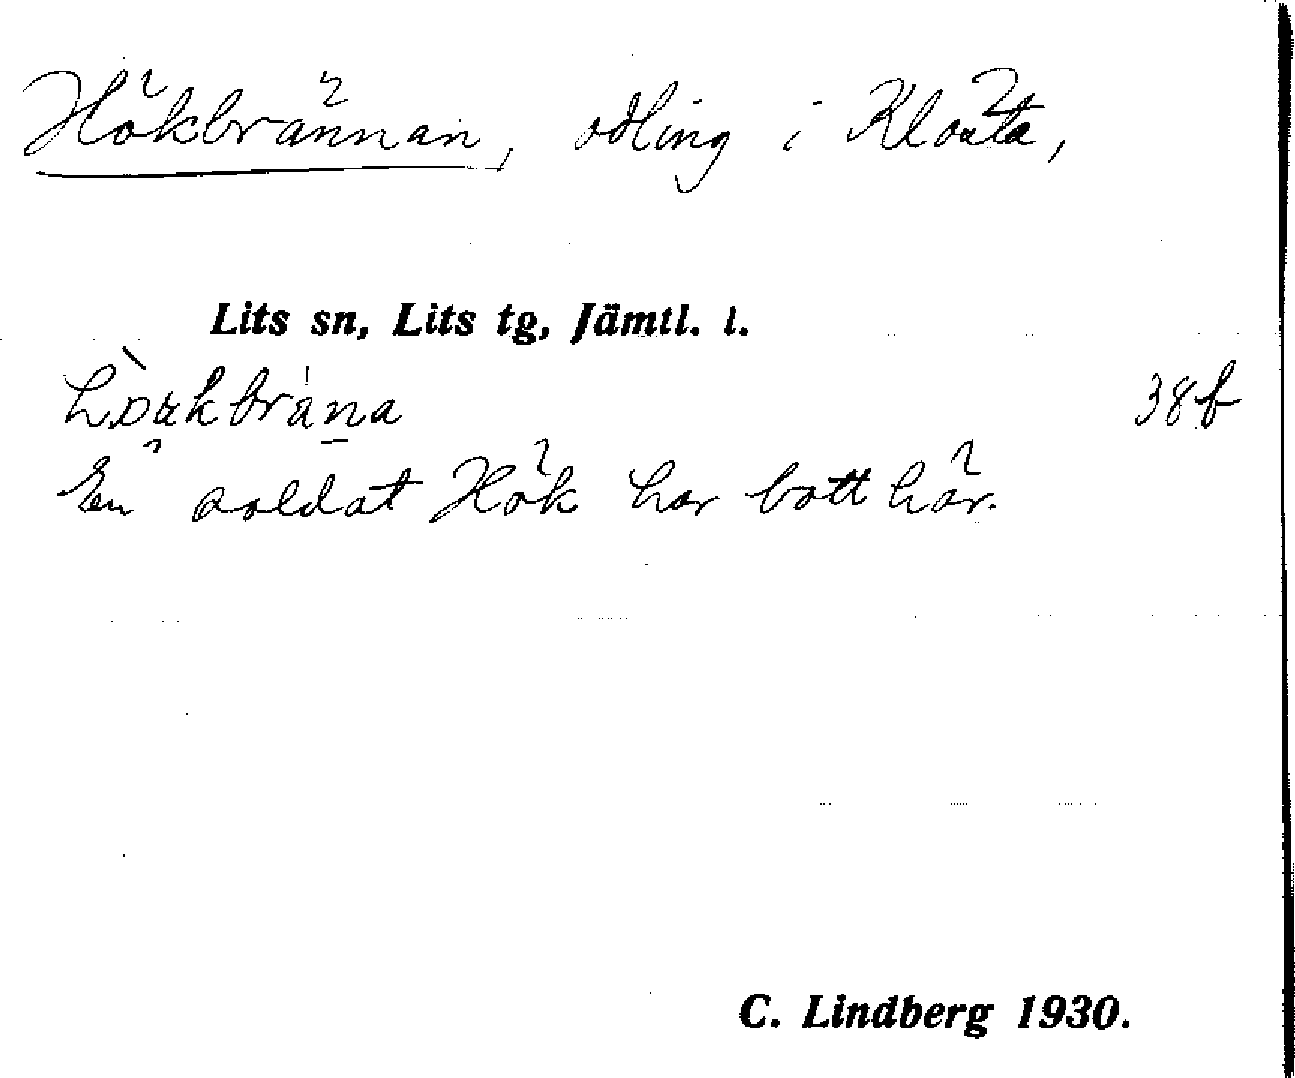 Hökbrännan, odling i Klösta,
Lits sn, Lits tg, Jämtl. l.
38 f
En soldat Hök har bott här.
C. Lindberg 1930.